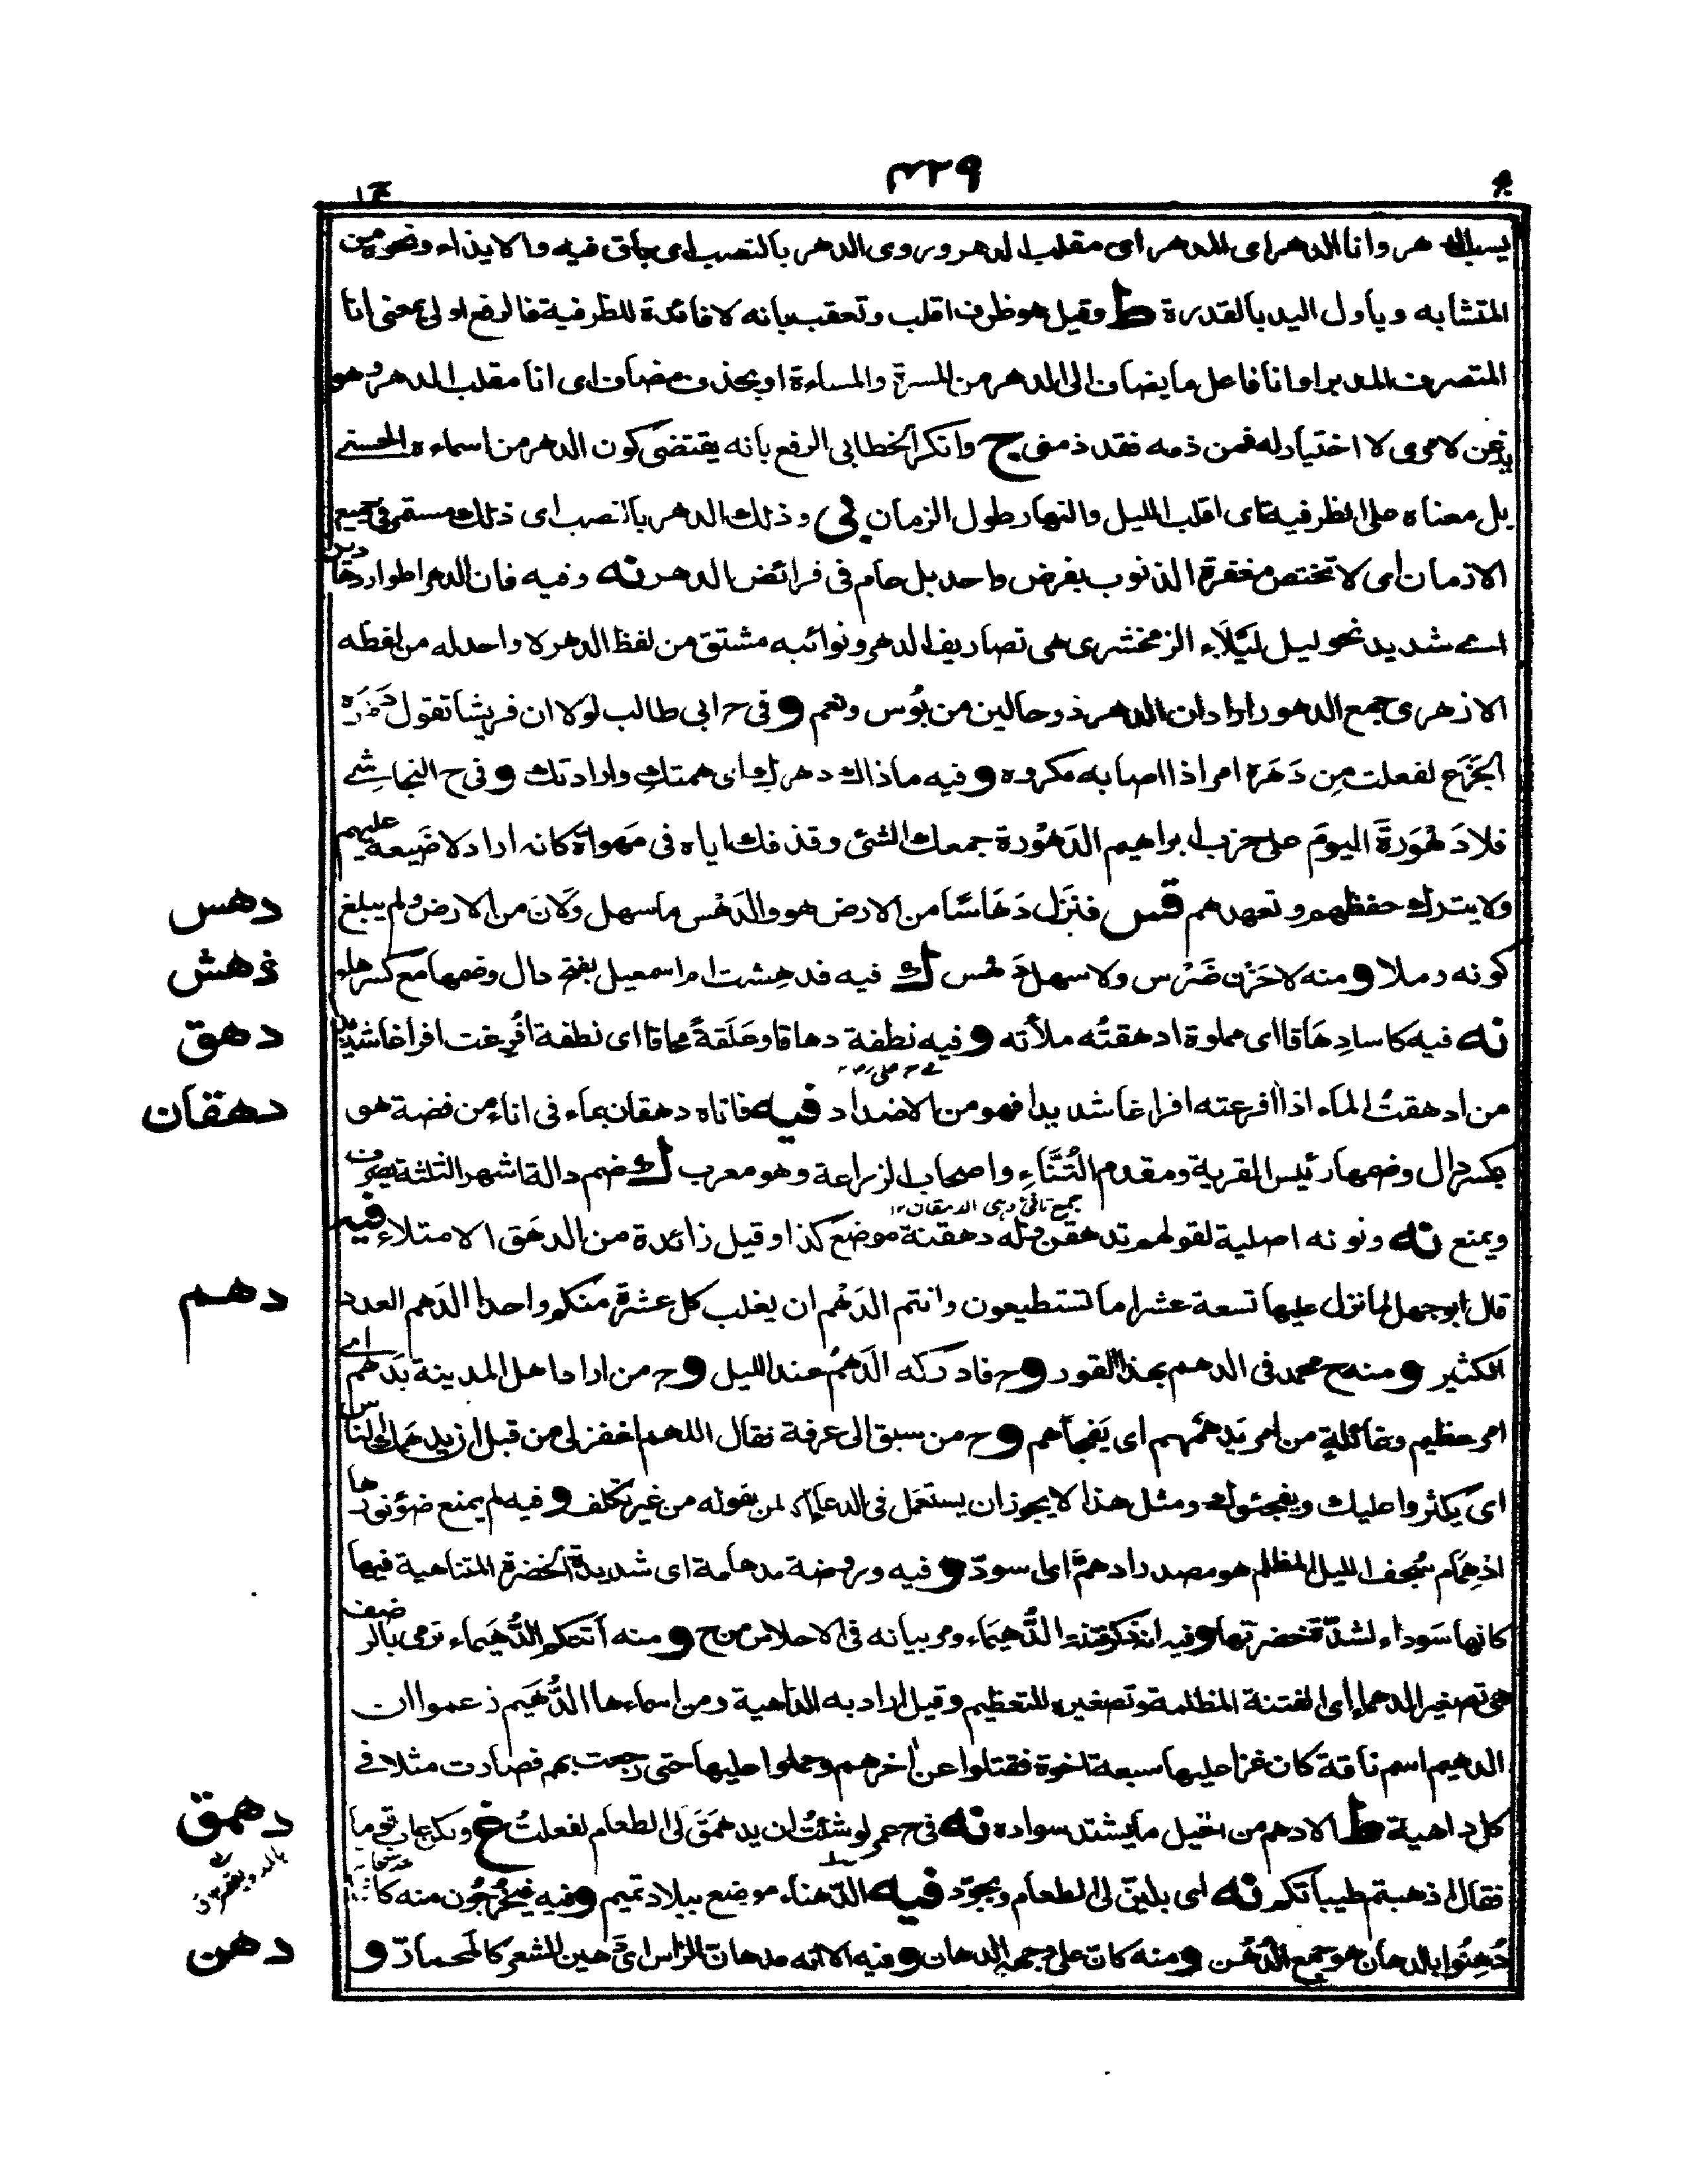 ۴۲۹
يسب الدهر وانا الدهر اى الدهر اى مقلب الدهر وروى الدهر بالنصب اى باق فيه والايذاء ونحوه من
المتشابه وياول اليد بالقدرة ط وقيل هو ظرف اقلب وتعقب بانه لا فائدة للظرفية فالرفع اولى بمعنى انا
المتصرف المدبر او انا فاعل ما يضاف الى الدهر من المسرة والمساءة او بحذف مضاف اى انا مقلب الدهر وهو
يذعن لامرى لا اختيار له فمن ذمه فقد ذمنى ج وانكر الخطابى الرفع بانه يقتضى كون الدهر من اسماءه الحسنى
بل معناه على الظرفية اى اقلب الليل والنهار طول الزمان فى وذلك الدهر بالنصب اى ذلك مستمر فى جميع
الازمان اى لا تختص مغفرة الذنوب بفرض واحد بل عام فى فرائض الدهر نه وفيه فان الدهر اطوار دهارير
اى شديد نحو ليل ليلاء الزمخشرى هى تصاريف الدهر ونوائبه مشتق من لفظ الدهر لا واحد له من لفظه
الازهرى جمع الدهور اراد ان الدهر ذو حالين من بؤس ونعم و فى ح ابى طالب لولا ان قريشا تقول دهره
الجزع لفعلت من دهره امر اذا اصابه مكروه و فيه ماذاك دهرك اى همتك وارادتك و فى ح النجاشى
فلا دهورة اليوم على حزب ابراهيم الدهورة جمعك الشئ وقذفك اياه فى مهواة كانه اراد لا ضيعة عليهم
ولا يترك حفظهم وتعهدهم قس فنزل دهاسا من الارض هو والدهس ما سهل ولان من الارض ولم يبلغ
كونه رملا و منه لا حزن ضرس ولا سهل دهس ك فيه فدهشت ام اسمعيل بفتح دال وضمها مع كسر هاء
نه فيه كاسا دهاقا اى مملوة ادهقته ملأته و فيه نطفة دهاقا وعلقة محاقا اى نطفة افرغت افراغا شديدا
من ادهقت الماء اذا افرغته افراغا شديدا فهو من الاضداد فيه فاتاه دهقان بماء فى اناء من فضة هو
بكسر دال وضمها رئيس القرية ومقدم التناء واصحاب الزراعة وهو معرب ك ضم دالة اشهر الثلثة يصرف
ويمنع نه ونونه اصلية لقولهم تدهقن وله دهقنة موضع كذا وقيل زائدة من الدهق الامتلاء فيه
قال ابو جهل لما نزل عليها تسعة عشر اما تستطيعون وانتم الدهم ان يغلب كل عشرة منكم واحدا الدهم العدد
الكثير و منه ح محمد فى الدهم بهذا القور و ح فادركه الدهم عند الليل و ح من اراد اهل المدينة بدهم اى
امر عظيم وغائلة من امر يدهمهم اى يفجأهم و ح من سبق الى عرفة فقال اللهم اغفر لى من قبل ان يدهمك الناس
اى يكثروا عليك ويفجئوك ومثل هذا لا يجوز ان يستعمل فى الدعاء الا لمن يقوله من غير تكلف و فيه لم يمنع ضوء نورها
ادهمام سجف الليل المظلم هو مصدر ادهم اى اسود و فيه وروضة مدهامة اى شديدة الخضرة المتناهية فيها
كانها سوداء لشدة خضرتها و فيه انه ذكر فتنة الدهيماء ومر بيانه فى الاحلاس من ح و منه أتتكم الدهيماء ترمى بالرضف
هى تصغير الدهماء اى الفتنة المظلمة وتصغيره للتعظيم وقيل اراد به الداهية ومن اسماءها الدهيم زعموا ان
الدهيم اسم ناقة كان غزا عليها سبعة اخوة فقتلوا عن اخرهم وحملوا عليها حتى رجعت بهم فصارت مثلا فى
كل داهية ط الادهم من الخيل ما يشتد سواده نه فى ح عمر لو شئت ان يدهمق لى الطعام لفعلت غ ولكن عاب قوما
فقال اذهبتم طيباتكم نه اى يلين لى الطعام ويجود فيه الدهناء موضع ببلاد تميم و فيه فيخرجون منه كانما
دهنوا بالدهان هو جمع الدهن و منه كان على وجهه الدهان و فيه الا انه مدهان الراس اى دهين الشعر كالمحمار و
دهس
دهش
دهق
دهقان
دهم
دهمق
دهن